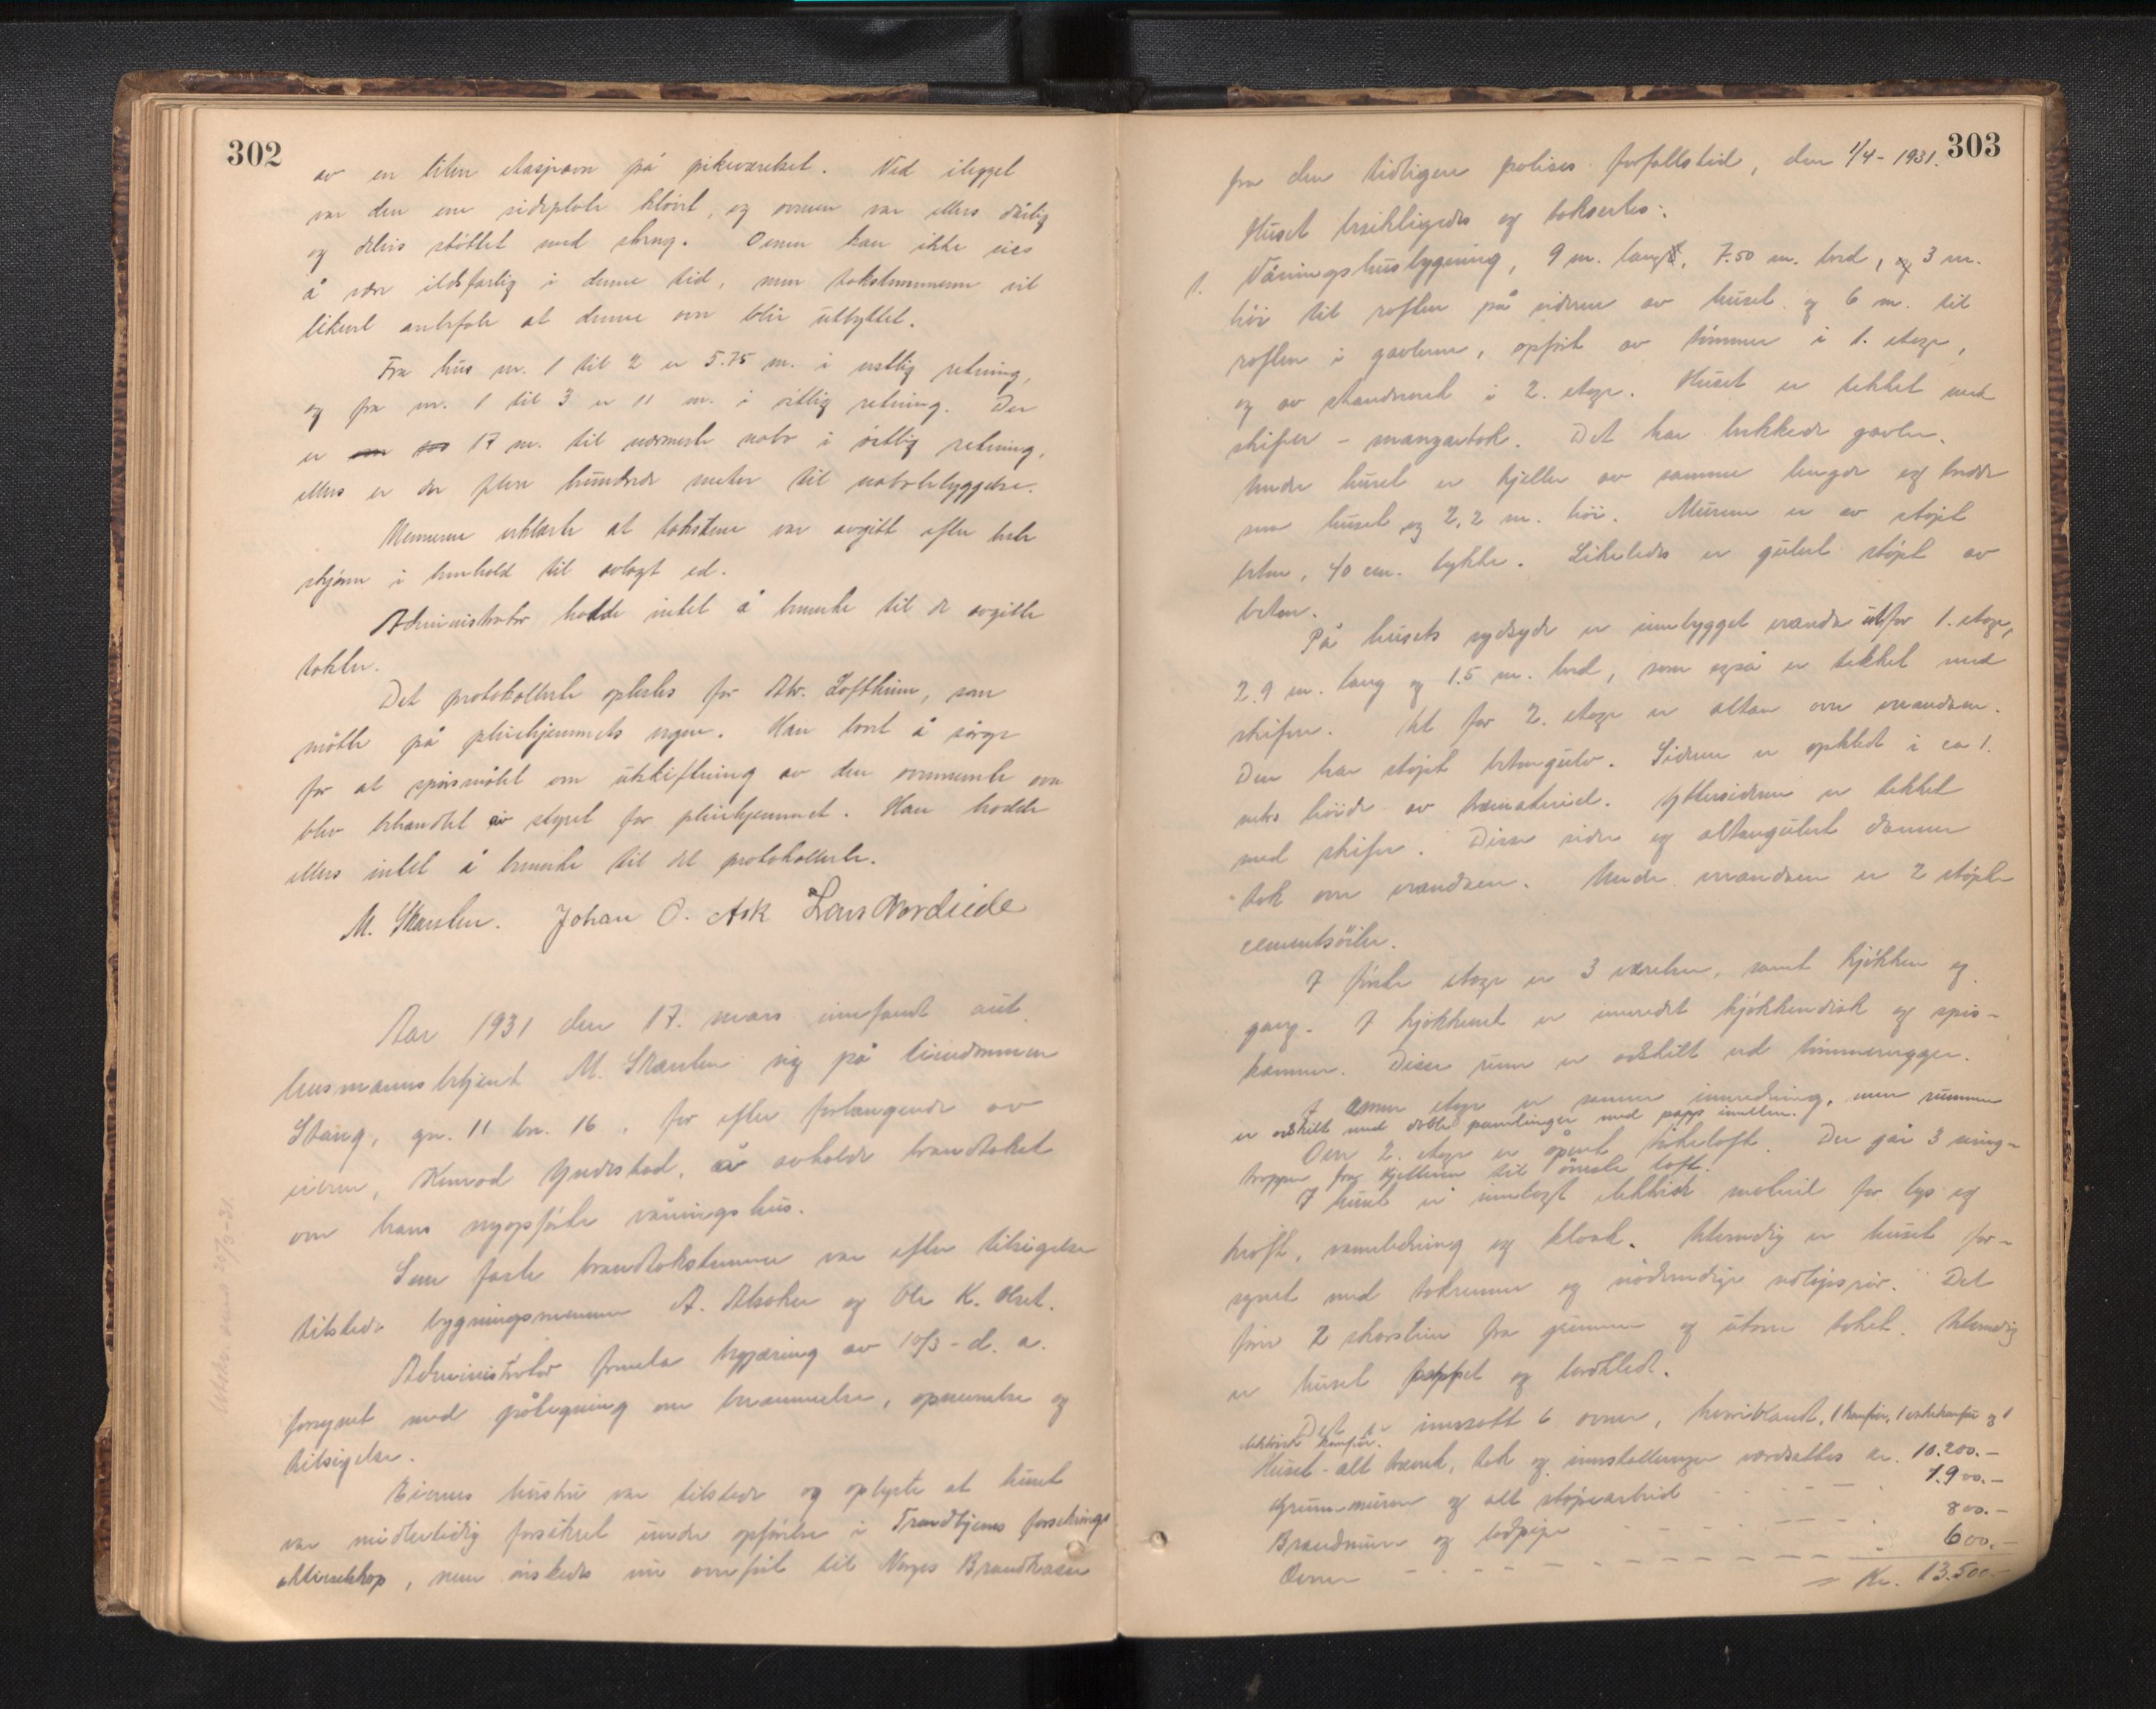 302
av en liten etasjeovn på pikeværelset. Ved ilegget
var den ene sideplate kløvet, og ovnen var ellers dårlig
og delvis støttet med streng. Ovnen kan ikke sies
å være ildsfarlig i denne tid, men takstmennene vil
likevel anbefale at denne ovn blir utbyttet.
Fra hus nr. 1 til 2 er 5.75 m. i vestlig retning,
og fra nr. 1 til 3 er 11 m. i østlig retning. Der
er 17 m. til nærmeste nabo i østlig retning,
ellers er der flere hundrede meter til nabobebyggelse.
Mennene erklærte at takstene var avgitt efter beste
skjønn i henhold til avlagt ed.
Administrator hadde intet å bemerke til de avgitte
takster.
Det protokollerte oplestes for Abr. Lofthein, som
møtte på pleiehjemmets vegne. Han lovet å sørge
for at spørsmålet om utskiftning av den ovennevnte ovn
blev behandlet av styret for pleiehjemmet. Han hadde
ellers intet å bemerke til det protokollerte.
M. Skaslien. Johan O. Ask Lars Nordeide
Aar 1931 den 17. mars innfandt aut.
lensmannsbetjent M. Skaslien sig på eiendommen
Stang, gn. 11 bn. 16, for efter forlangende av
eieren, Konrad Yndestad, å avholde brandtakst
over hans nyopførte våningshus.
Som faste brandtakstmenner var efter tilsigelse
tilstede bygningsmennene A. Alsaker og Ole K. Olset.
Administrator fremla begjæring av 10/3 - d. a.
forsynet med påtegning om berammelse, opnevnelse og
tilsigelse.
Eierens hustru var tilstede og oplyste at huset
var midlertidig forsikret under opførelse i Trondhjems forsikrings
aktieselskap, men ønskedes nu overført til Norges Brandkasse
Utskr. sens 20/3-31.
303
fra den tidligere polises forfallstid, den 1/4 - 1931.
Huset besiktigedes og taksertes:
1. Våningshusbygning, 9 m. lang, 7.50 m. bred, og 3 m.
høi til røsten på sidene av huset og 6 m. til
røsten i gavlene, opført av tømmer i 1. etage,
og av standverk i 2. etage. Huset er tekket med
skifer - mansardtak. Det har brekkede gavler.
Under huset er kjeller av samme lengde og bredde
som huset og 2,2 m. høi. Murene er av støpt
beton, 40 cm. tykke. Likeledes er gulvet støpt av
beton.
På husets sydside er innbygget veranda utfor 1. etage,
2.9 m. lang og 1.5 m. bred, som også er tekket med
skifer. Ut for 2. etage er altan over verandaen.
Den har støpt betongulv. Sidene er opkledt i ca 1.
meters høide av træmateriel. Yttersidene er tekket
med skifer. Disse sider og altangulvet danner
tak over verandaen. Under verandaen er 2 støpte
cementsøiler.
I første etage er 3 værelser, samt kjøkken og
gang. I kjøkkenet er innredet kjøkkendisk og spis-
kammer. Disse rum er adskilt ved tømmervegger.
I annen etage er samme innredning, men rummene
er adskilt med doble panelinger med papp imellem.
Over 2. etage er åpent mørkeloft. Der går 3 sving-
trapper fra kjelleren til øverste loft.
I huset er innlagt elektrisk materiel for lys og
kraft, vannledning og kloak. Utvendig er huset for-
synet med takrenner og nødvendige nedløpsrør. Det
fører 2 skorstene fra grunnen og utover taket. Utvendig
er huset pappet og bordkledt.
Det er innsatt 6 ovner, heriblandt, 1 komfyr, 1 vaskekomfyr og 1
elektrisk komfyr.
Huset - alt træverk, tak og innstallasjoner værdsattes kr. 10.200.-
Grunnmuren og alt støpearbeid 1.900.-
Brandmurer og ... 800.-
Ovner 600.-
= Kr. 13.500.-